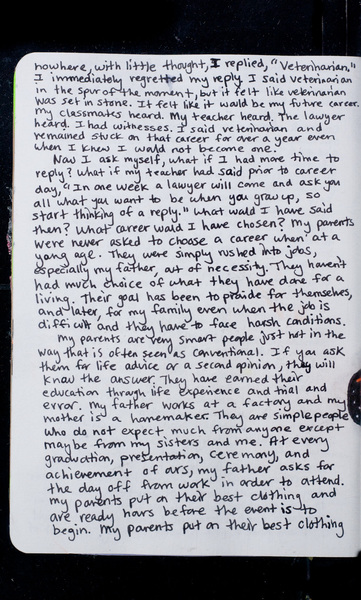 nowhere, with little thought, I replied, "Veterinarian."
I immediately regretted my reply. I said veterinarian
in the spur of the moment, but it felt like veterinarian
was set in stone. It felt like it would be my future career.
my classmates heard. My teacher heard. The lawyer
heard. I had witnesses. I said veterinarian and
remained stuck on that career for over a year even
when I knew I would not become one.
Now I ask myself, what if I had more time to
reply? What if my teacher had said prior to career
day, "In one week a lawyer will come and ask you
all what you want to be when you grow up, so
start thinking of a reply." What would I have said
then? What career would I have chosen? My parents
were never asked to choose a career when at a
young age. They were simply rushed into jobs,
especially my father, out of necessity. They haven't
had much choice of what they have done for a
living. Their goal has been to provide for themselves,
and later, for my family even when the job is
difficult and they have to face harsh conditions.
My parents are very smart people just not in the
way that is often seen as conventional. If you ask
them for life advice or a second opinion, they will
know the answer. They have earned their
education through life experience and trial and
error. My father works at a factory and my
mother is a homemaker. They are simple people
who do not expect much from anyone except
maybe from my sisters and me. At every
graduation, presentation, ceremony, and
achievement of ours, my father asks for
the day off from work in order to attend.
My parents put on their best clothing and
are ready hours before the event is to
begin. My parents put on their best clothing